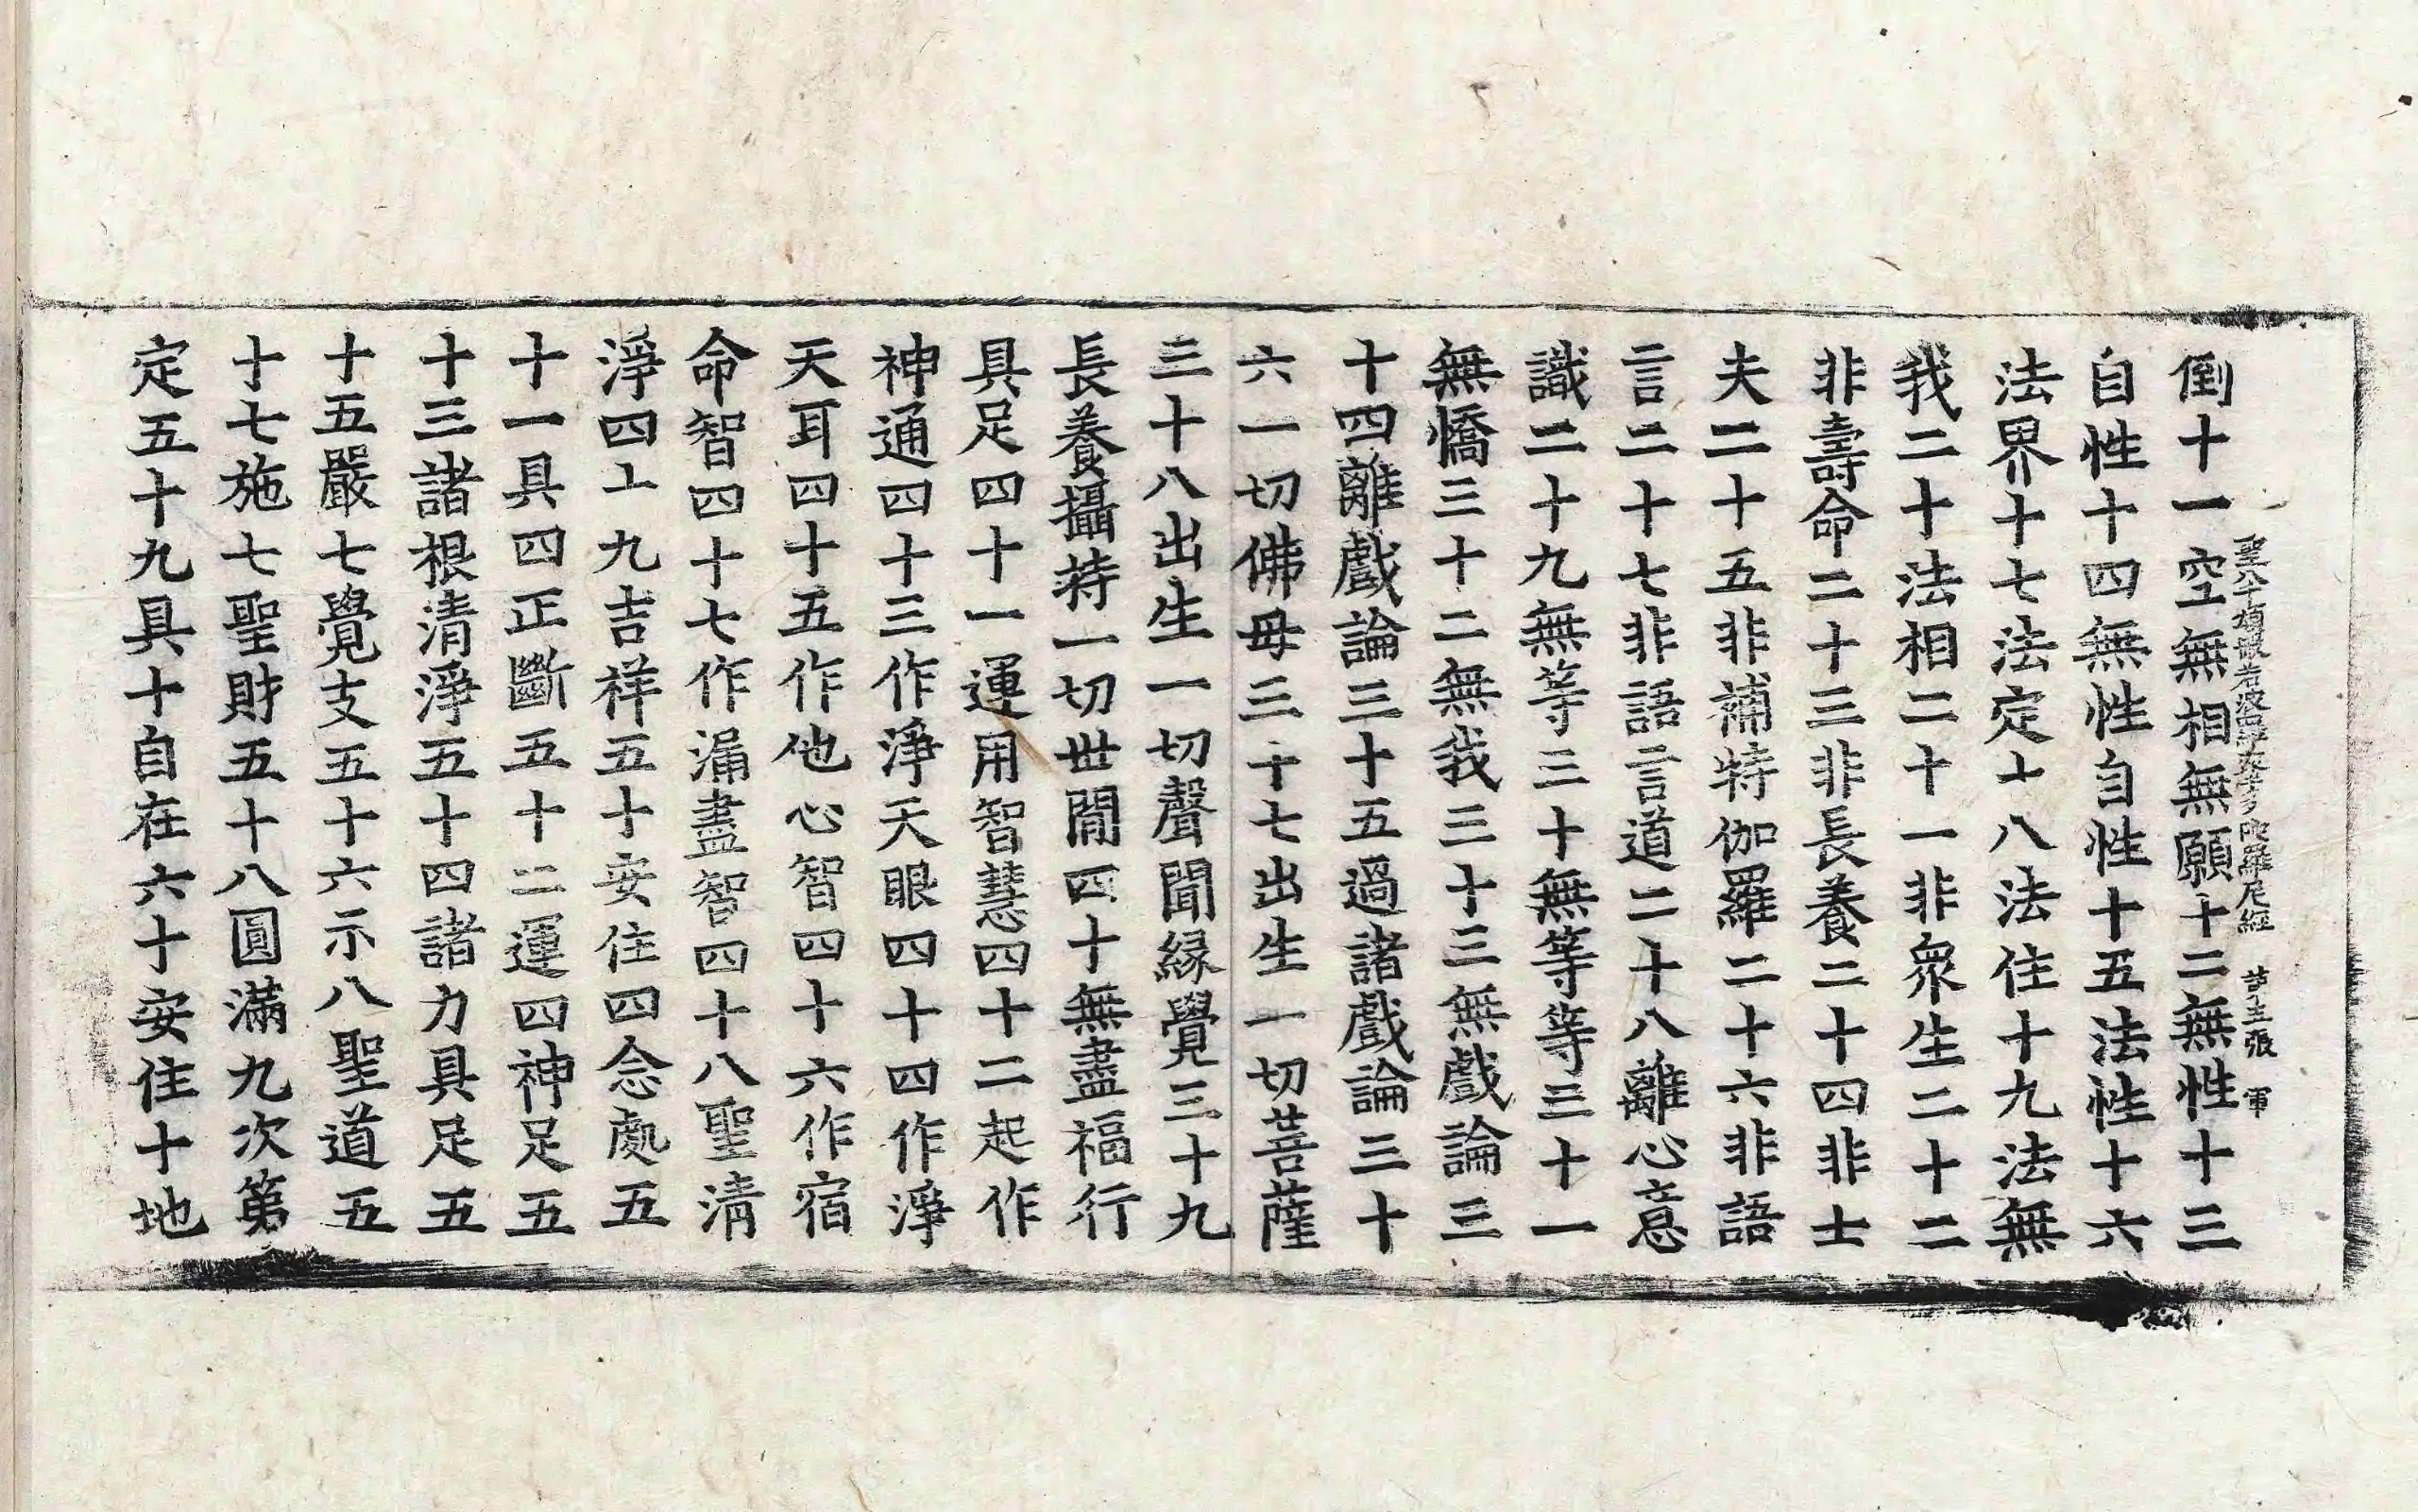 倒十一空無相無願十二無性十三
自性十四無性自性十五法性十六
法界十七法定十八法住十九法無
我二十法相二十一非衆生二十二
非壽命二十三非長養二十四非士
夫二十五非補特伽羅二十六非語
言二十七非語言道二十八離心意
識二十九無等三十無等等三十一
無憍三十二無我三十三無戲論三
十四離戲論三十五過諸戲論三十
六一切佛母三十七出生一切菩薩
三十八出生一切聲聞緣覺三十九
長養攝持一切世間四十無盡福行
具足四十一運用智慧四十二起作
神通四十三作淨天眼四十四作淨
天耳四十五作他心智四十六作宿
命智四十七作漏盡智四十八聖清
淨四十九吉祥五十安住四念處五
十一具四正斷五十二運四神足五
十三諸根清淨五十四諸力具足五
十五嚴七覺支五十六示八聖道五
十七施七聖財五十八圓滿九次第
定五十九具十自在六十安住十地